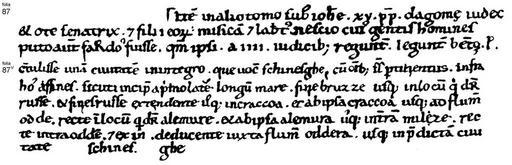 folia
87
Itē in alio tomo sub ioħe . xv . pp . dagome iudex
& ote senatrix . 7 filii eoꝝ . misica & labt͛ nescio cui gentis homines
puto autē sardos fuisse . qm̄ ipsi a IIII . iudicib; regunt͛ . legunt͛ beto . P .
folia
87ᵛ
ctulisse unā ciuitatē in integro . que uoc͛ schinesghe , cū oīb; pertinentiis . infra
ho affines . sicuti incipit a pmo late . longū mare . fine bruzze usq; in locū q dr̄
russe . & fines russe extendente usq; in craccoa . & ab ipsa craccoa usq; ad flum̄
odde , recte ī locū q dr̄ alemure . & ab ipsa alemura usq; in trā milze . rec
te intra odde , 7 ex in . deducente iuxta flum̄ oddera . usq; in p̄dictā ciui
tate schines . ghe